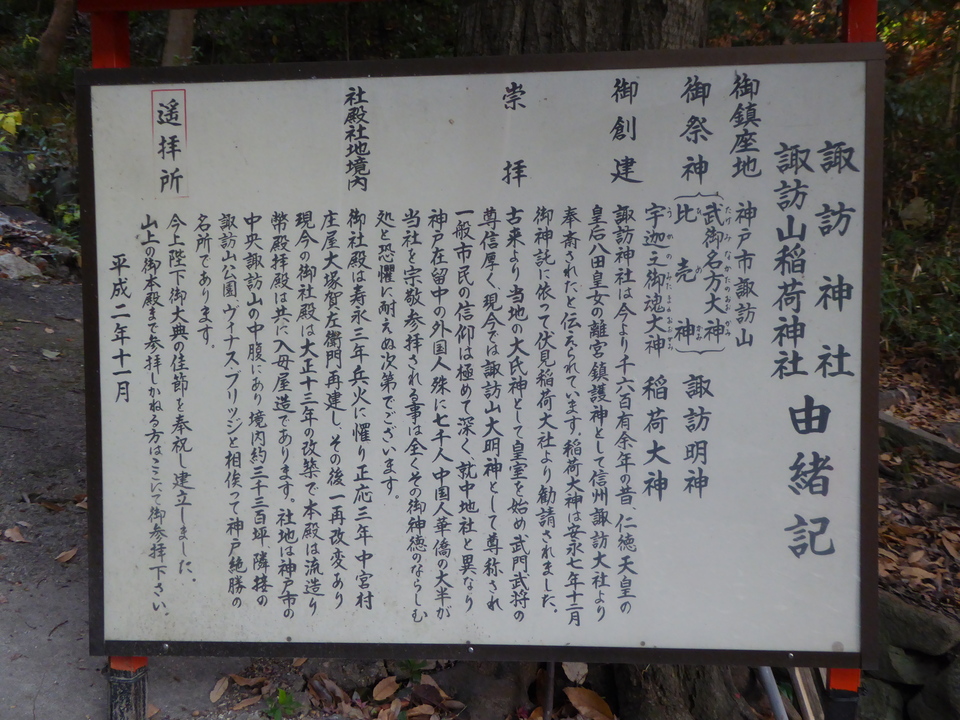 諏訪神社
諏訪山稲荷神社
由緒記
御鎮座地
神戸市諏訪山
御祭神
武御名方大神
比売神
諏訪明神
宇迦之御魂大神
稲荷大神
御創建
諏訪神社は今より千六百有余年の昔、仁徳天皇の
皇后八田皇女の離宮鎮護神として信州諏訪大社より
奉斎されたと伝えられています。稲荷大神は安永七年十二月
御神託に依って伏見稲荷大社より勧請されました。
崇拝
古来より当地の大氏神として皇室を始め武門武将の
尊信厚く、現今では諏訪山大明神として尊称され
一般市民の信仰は極めて深く、就中地社と異なり
神戸在留中の外国人殊に七千人中国人華僑の大半が
当社を宗敬参拝される事は全くその御神徳のならしむ
処と恐懼に耐えぬ次第でございます。
社殿社地境内
御社殿は寿永三年兵火に罹り正応三年中宮村
庄屋大塚賀左衛門再建し、その後一再改変あり
現今の御社殿は大正十三年の改築で本殿は流造り
幣殿拝殿は共に入母屋造であります。社地は神戸市の
中央諏訪山の中腹にあり境内約三千三百坪、隣接の
諏訪山公園、ヴィナス・ブリッジと相俟って神戸絶勝の
名所であります。
遥拝所
今上陛下御大典の佳節を奉祝し建立しました、
山上の御本殿まで参拝しかねる方はここにて御参拝下さい。
平成二年十一月